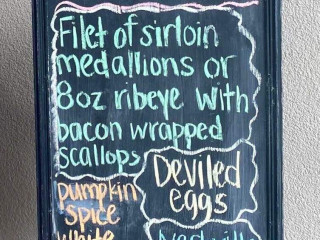 Filet of sirloin
medallions or
8oz ribeye with
bacon wrapped
scallops
Deviled
eggs
pumpkin
spice
white
Nashville